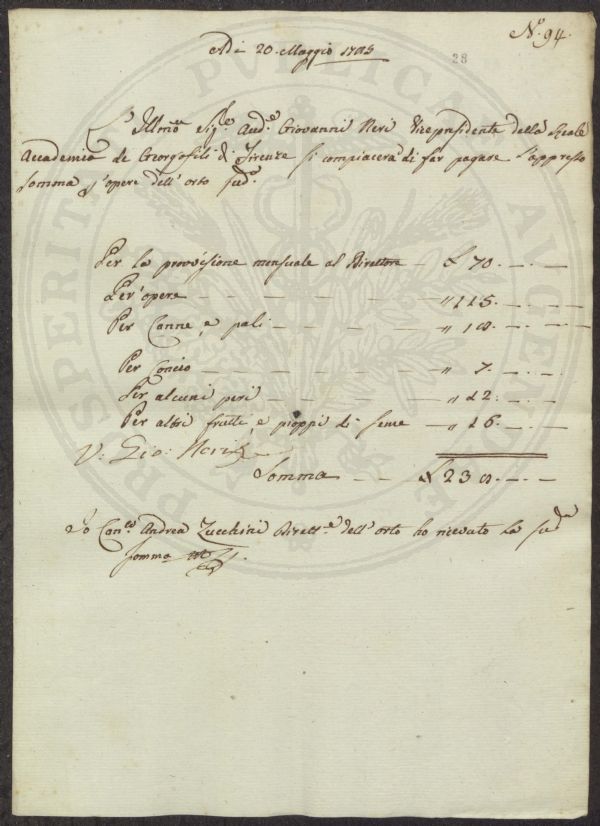 N.º 94.
Adì 20. Maggio 1785
28
L'Illmo Sig.e Aud.e Giovanni Neri Vicepresidente della Reale
Accademia de Georgofili di Firenze si compiacerà di far pagare l'appresso
somma p l'opere dell'orto sud.º
Per la provvisione mensuale al Direttore — £ 70. — . —
Per opere — — — — — — „ 115. — . —
Per Canne, e pali — — — — „ 18. — . —
Per Concio — — — — — — „ 7. — . —
Per alcuni peri — — — — — „ 12. — . —
Per altri frutti, e pioppi di seme — „ 16. — . —
V: Gio: Neri
Somma — — £ 238. — . —
Io Can.co Andrea Zucchini Dirett.e dell'orto ho ricevuto la sud.a
somma